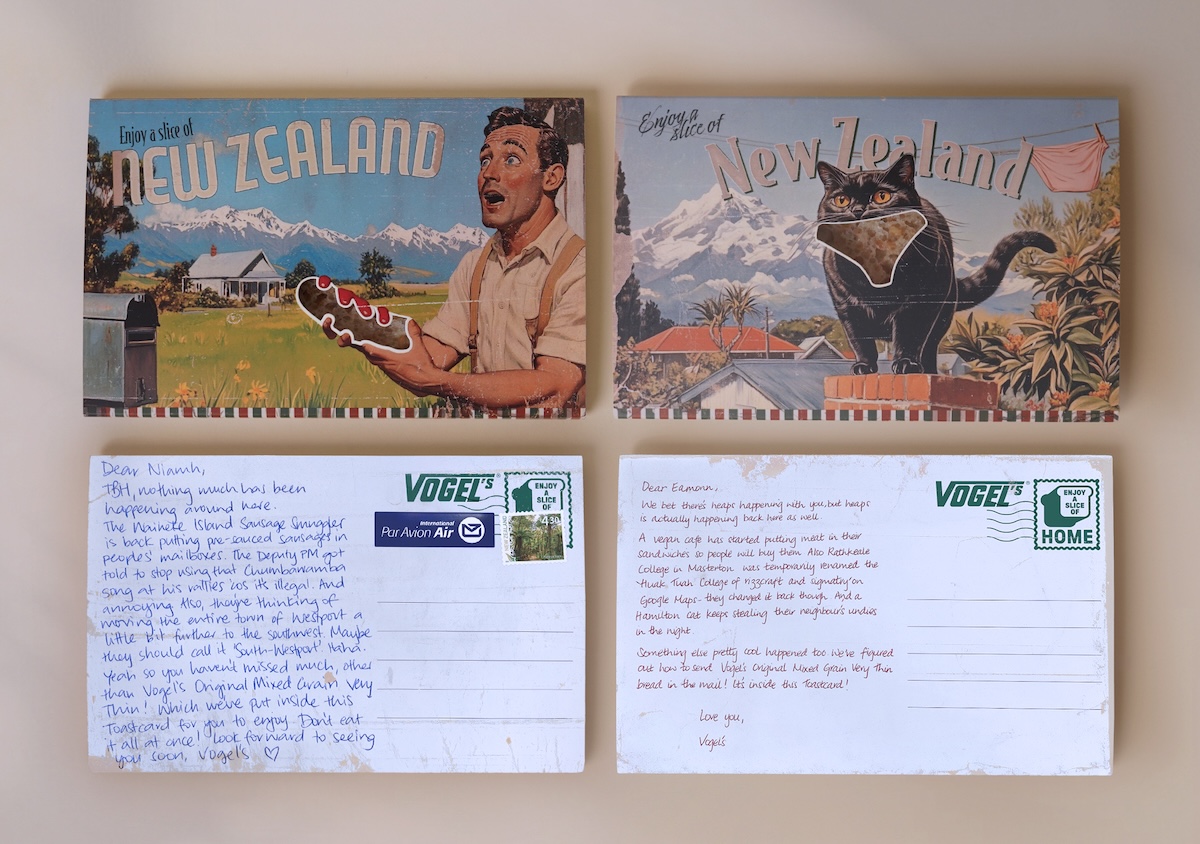 Enjoy a slice of
NEW ZEALAND
Enjoy a
slice of
New Zealand
Dear Niamh,
TBH, nothing much has been
happening around here.
The Waiheke Island Sausage Smuggler
is back putting pre-sauced sausages in
peoples' mailboxes. The Deputy PM got
told to stop using that Chumbawamba
song at his rallies 'cos it's illegal. And
annoying. Also, they're thinking of
moving the entire town of Westport a
little bit further to the southwest. Maybe
they should call it 'South-Westport'. Haha.
Yeah so you haven't missed much, other
than Vogel's Original Mixed Grain Very
Thin! Which we've put inside this
Toastcard for you to enjoy. Don't eat
it all at once! Look forward to seeing
you soon, Vogel's ♡
VOGEL'S®
ENJOY
A
SLICE
OF
International
Par Avion Air
4.30
Dear Eamonn,
We bet there's heaps happening with you, but heaps
is actually happening back here as well.
A vegan cafe has started putting meat in their
sandwiches so people will buy them. Also Rathkeale
College in Masterton was temporarily renamed the
Huak Tuah College of rizzcraft and sigmatry on
Google Maps - they changed it back though. And a
Hamilton cat keeps stealing their neighbour's undies
in the night.
Something else pretty cool happened too. We've figured
out how to send Vogel's Original Mixed Grain Very Thin
bread in the mail! It's inside this Toastcard!
Love you,
Vogel's
VOGEL'S®
ENJOY
A
SLICE
OF
HOME